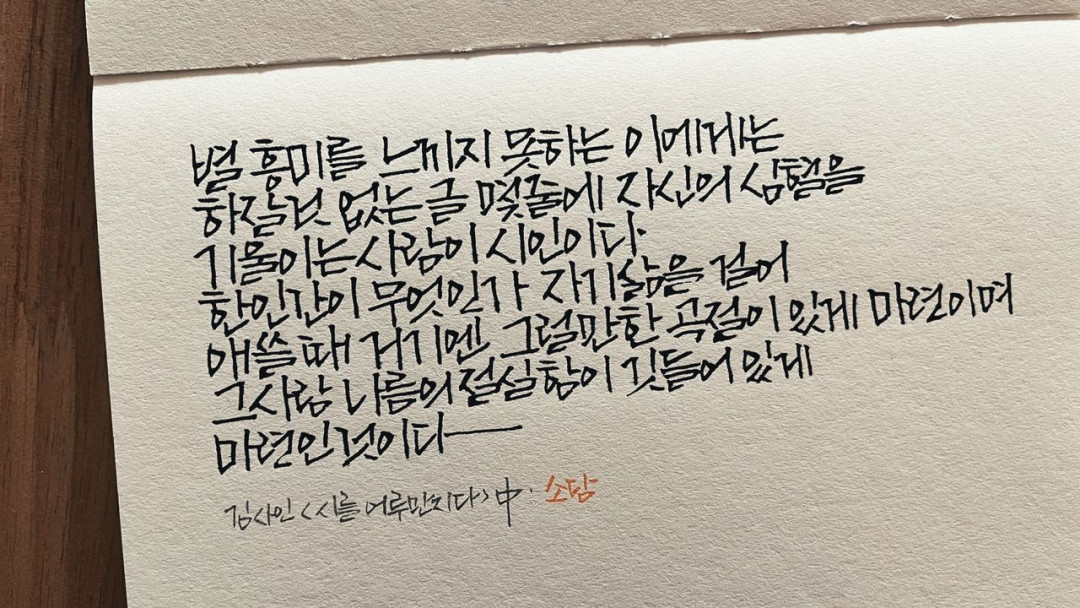 별 흥미를 느끼지 못하는 이에게는
하잘것 없는 글 몇줄에 자신의 심혈을
기울이는 사람이 시인이다.
한인간이 무엇인가 자기삶을 걸어
애쓸 때 거기엔 그럴만한 곡절이 있게 마련이며
그사람 나름의 절실함이 깃들어 있게
마련인것이다——
김사인 <시를 어루만지다> 中. 소담